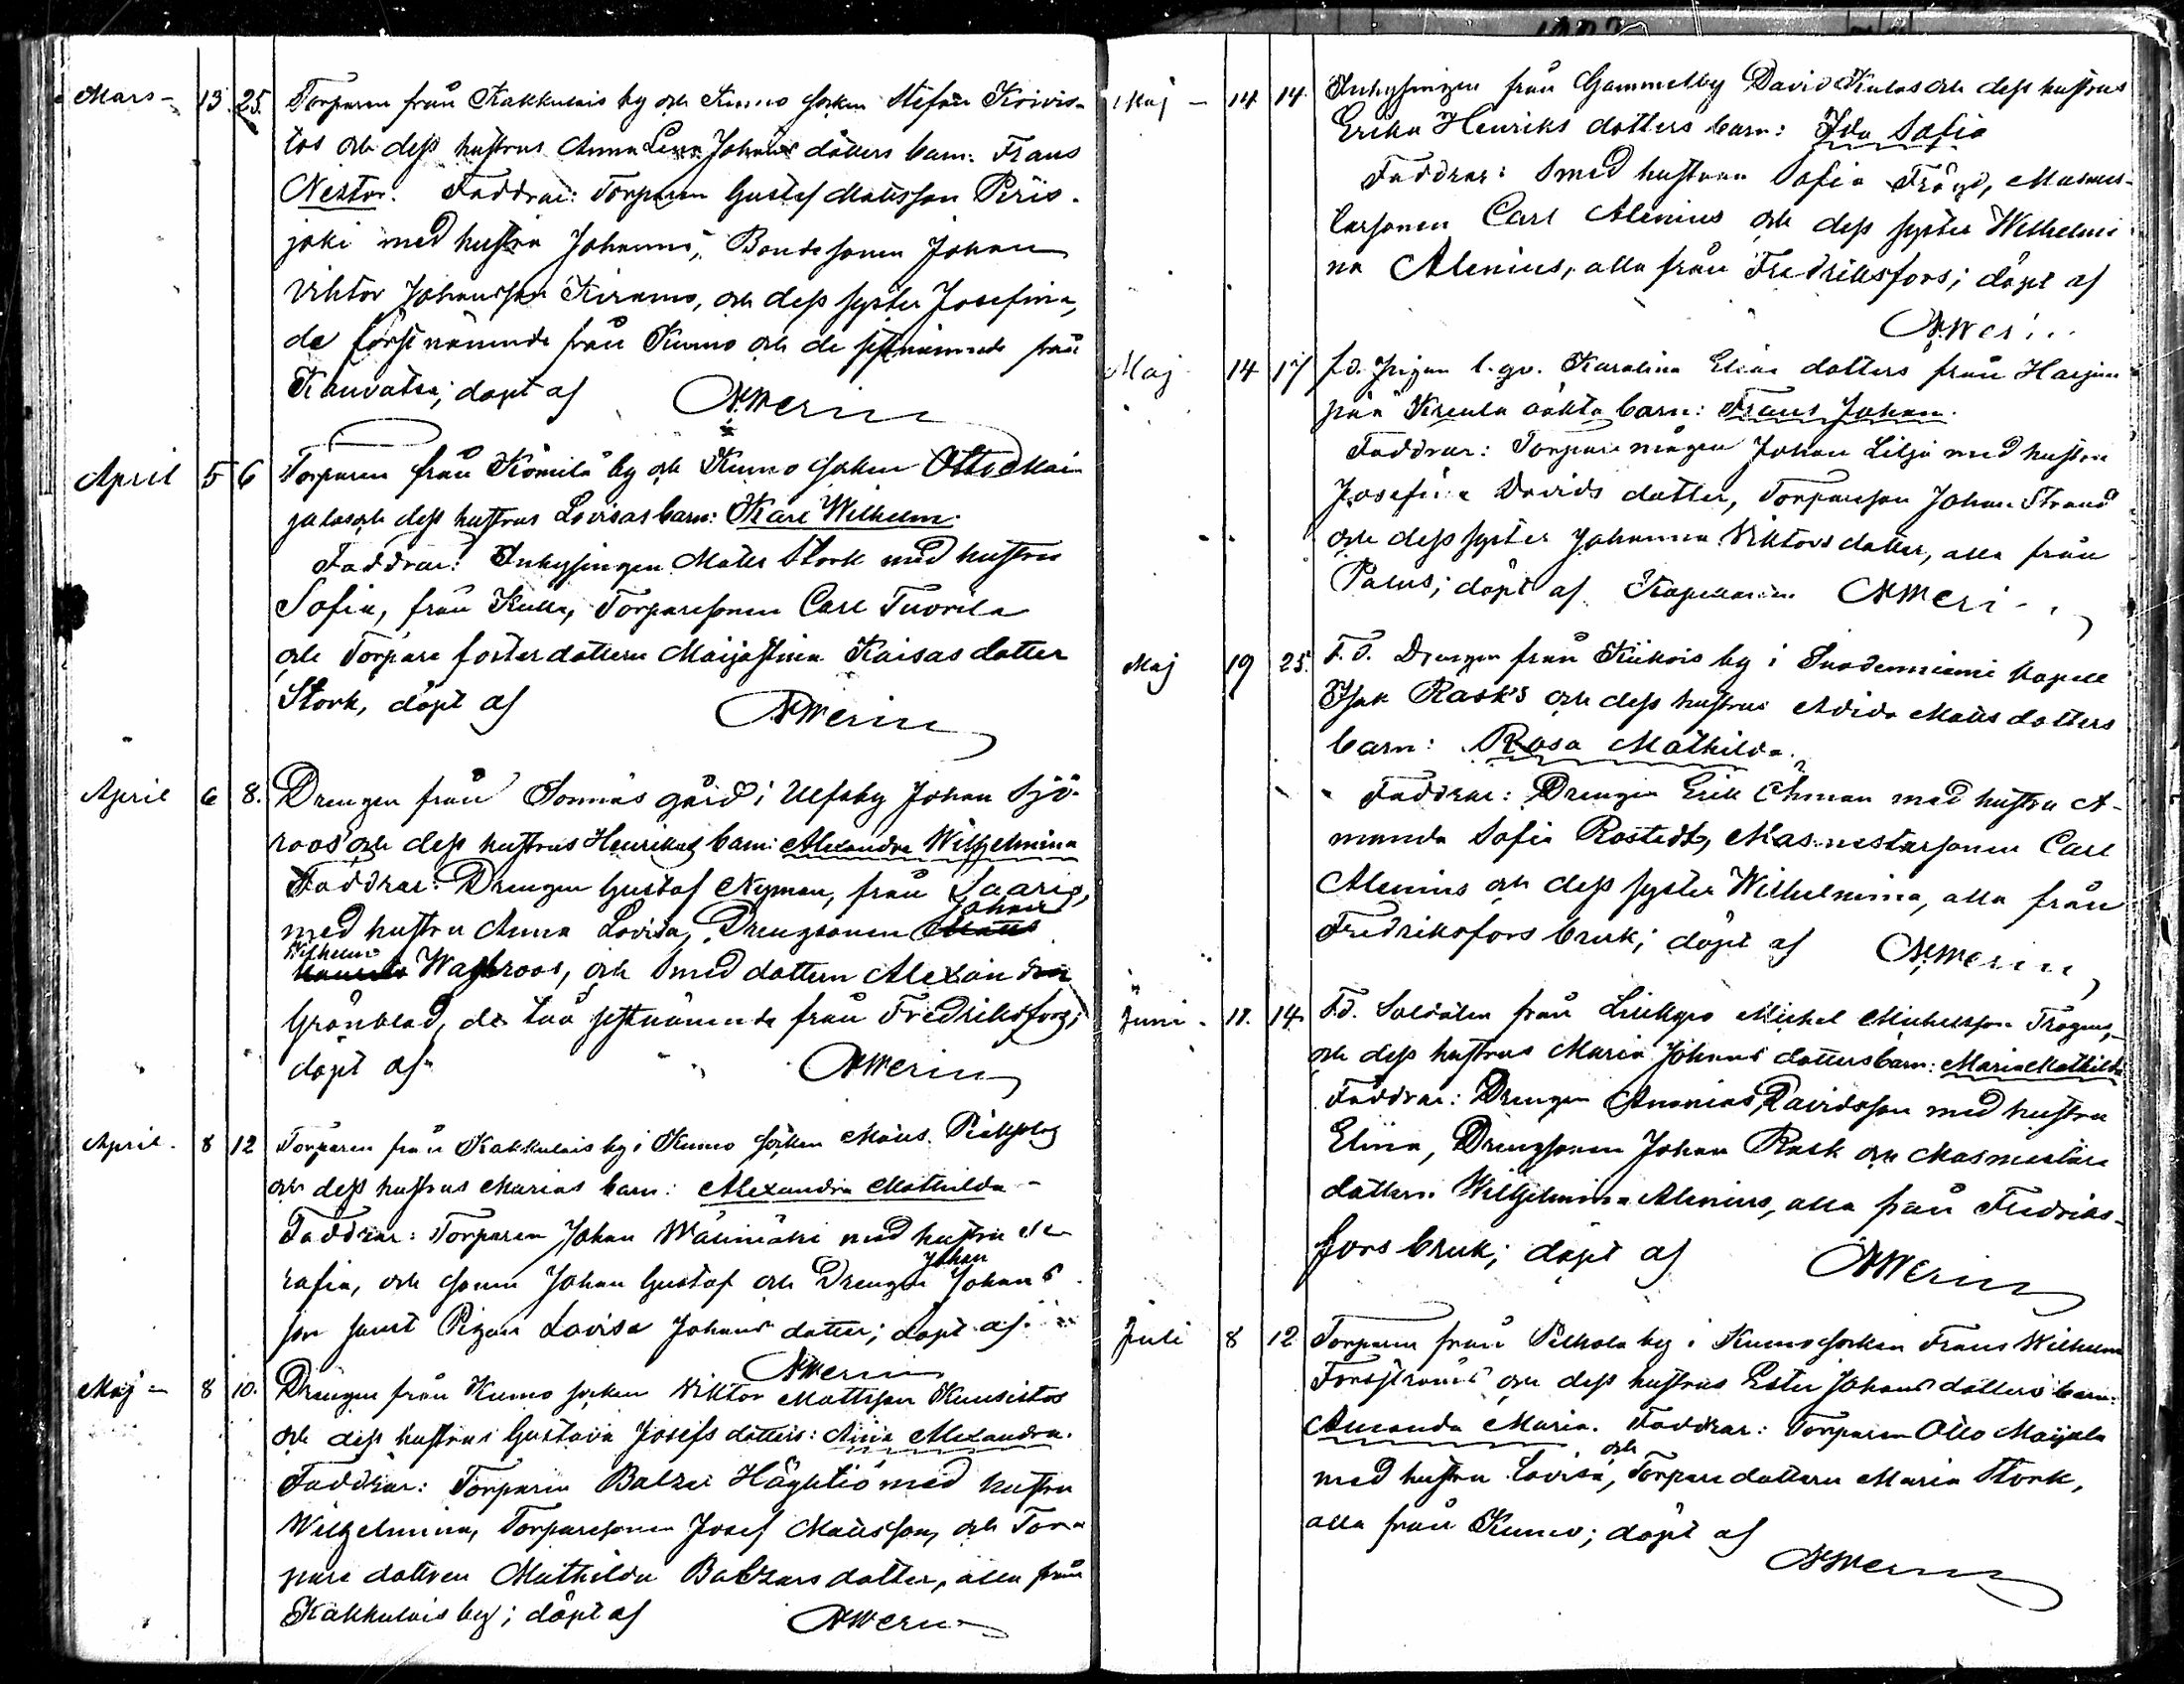 Mars - 13. 25. Torparen från Kakkulais by och Kumo socken Stefan Koivis-
tos och dess hustrus Anna Lena Johans dotters barn: Frans
Nestor. Faddrar: Torparen Gustaf Matsson Piris-
joki med hustru Johanna, Bondesonen Johan
Viktor Johansson Kiramo, och dess syster Josefina,
de förstnämnde från Kumo och de sistnämnde från
Kauvatsa; döpt af NWerin
April 5 6 Torparen från Kömilä by och Kumo socken Otto Mai-
jalas och dess hustrus Lovisas barn: Karl Wilhelm.
Faddrar: Inhysingen Matts Stork med hustru
Sofia, från Kulla, Torparesonen Carl Tuorila
och Torpare fosterdottern Maijastina Kaisas dotter
Stork, döpt af NWerin
April 6 8. Drengen från Sonnäs gård i Ulfsby Johan Sjö-
roos och dess hustrus Henrikas barn: Alexandra Wilhelmina
Faddrar: Drengen Gustaf Nyman, från Saaris,
Johan
med hustru Anna Lovisa, Drengsonen Matts
Wilhelm
Wahlroos, och Smed dottern Alexandra
Grönblad, de två sistnämnde från Fredriksfors;
döpt af NWerin
April. 8 12 Torparen från Kakkulais by i Kumo socken Matts
och dess hustrus Marias barn: Alexandra Mathilda -
Faddrar: Torparen Johan Wäinimäki med hustru Se-
Johan
rafia, och sonen Johan Gustaf och Drengen Johans
son samt Pigan Lovisa Johans dotter; döpt af
NWerin
Maj - 8 10. Drengen från Kumo socken Viktor Mattsson Kuusistos
och dess hustrus Gustava Josefs dotters: Aina Alexandra.
Faddrar: Torparen Balzar Häyhtiö med hustru
Wilhelmina, Torparesonen Josef Matsson, och Tor-
pare dottren Mathilda Balzars dotter, alla från
Kakkulais by; döpt af NWerin
Maj - 14 14. Inhysingen från Gammelby David Kulas och dess hustrus
Erika Henriks dotters barn: Ida Sofia
Faddrar: Smed hustrun Sofia Frögd, Masmes-
tarsonen Carl Alenius och dess syster Wilhelmi-
na Alenius, alla från Fredriksfors; döpt af
NWerin
Maj 14 17 f.d. Pigan l. qv. Karolina Elias dotters från Harjun-
pää Kreula oäkta barn: Frans Johan.
Faddrar: Torpare mågen Johan Lilja med hustru
Josefina Davids dotter, Torparson Johan Strand
och dess syster Johanna Viktors dotter, alla från
Palus; döpt af Kapellanen NWerin
Maj 19 25. F.d. Drengen från Kiikois by i Suodenniemi Kapell
Isak Rasks och dess hustrus Adida Matts dotters
barn: Rosa Mathilda.
Faddrar: Drengen Erik Ekman med hustru A-
manda Sofia Rostedt, Masmestarsonen Carl
Alenius och dess syster Wilhelmina, alla från
Fredriksfors bruk; döpt af NWerin
Juni - 11. 14 F.d. Soldaten från Leikgro Mickel Mickelsson Trogens,
och dess hustrus Maria Johans dotters barn: Maria Mathilda
Faddrar: Drengen Ananias Davidsson med hustru
Elina, Drengsonen Johan Rask och Masmestare
dottern Wilhelmina Alenius, alla från Fredriks-
fors bruk; döpt af NWerin
Juli 8 12 Torparen från Pelhola by i Kumo socken Frans Wilhelm
Forsströms och dess hustrus Ester Johans dotters barn:
Amanda Maria. Faddrar: Torparen Otto Maijala
och
med hustru Lovisa, Torpare dottern Maria Stork,
alla från Kumo; döpt af
NWerin